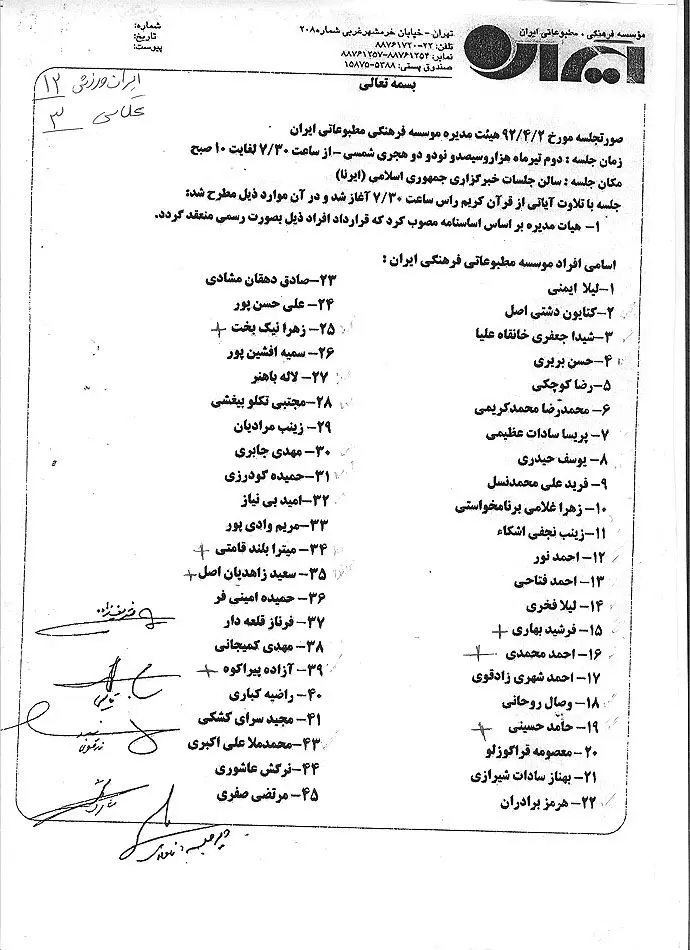 مؤسسه فرهنگی ، مطبوعاتی ایران
ایران
تهران - خیابان خرمشهرغربی شماره ۲۰۸
تلفن: ۲۲-۸۸۷۶۱۷۲۰
نمابر: ۸۸۷۶۱۲۵۴-۸۸۷۶۱۲۵۷
صندوق پستی: ۵۳۸۸-۱۵۸۷۵
شماره:
تاریخ:
پیوست:
بسمه تعالی
ایران ورزشی ۱۲
عکاسی ۳
صورتجلسه مورخ ۹۲/۴/۲ هیئت مدیره موسسه فرهنگی مطبوعاتی ایران
زمان جلسه : دوم تیرماه هزاروسیصدو نودو دو هجری شمسی – از ساعت ۷/۳۰ لغایت ۱۰ صبح
مکان جلسه : سالن جلسات خبرگزاری جمهوری اسلامی (ایرنا)
جلسه با تلاوت آیاتی از قرآن کریم راس ساعت ۷/۳۰ آغاز شد و در آن موارد ذیل مطرح شد:
۱- هیات مدیره بر اساس اساسنامه مصوب کرد که قرارداد افراد ذیل بصورت رسمی منعقد گردد.
اسامی افراد موسسه مطبوعاتی فرهنگی ایران :
۱-لیلا ایمنی
۲-کتایون دشتی اصل
۳-شیدا جعفری خانقاه علیا
۴-حسن بربری
۵-رضا کوچکی
۶- محمدرضا محمدکریمی
۷- پریسا سادات عظیمی
۸- یوسف حیدری
۹- فرید علی محمدنسل
۱۰- زهرا غلامی برنامخواستی
۱۱-زینب نجفی اشکاء
۱۲- احمد نور
۱۳- احمد فتاحی
۱۴- لیلا فخری
۱۵- فرشید بهاری +
۱۶- احمد محمدی +
۱۷- احمد شهری زادقوی
۱۸- وصال روحانی
۱۹- حامد حسینی +
۲۰- معصومه قراگوزلو
۲۱- بهناز سادات شیرازی
۲۲- هرمز برادران
۲۳-صادق دهقان مشادی
۲۴- علی حسن پور
۲۵- زهرا نیک بخت +
۲۶- سمیه افشین پور
۲۷- لاله باهنر
۲۸-مجتبی تکلو بیغشی
۲۹- زینب مرادیان
۳۰- مهدی جابری
۳۱-حمیده گودرزی
۳۲-امید بی نیاز
۳۳-مریم وادی پور
۳۴- میترا بلند قامتی +
۳۵- سعید زاهدیان اصل +
۳۶- حمیده امینی فر
۳۷- فرناز قلعه دار
۳۸- مهدی کمیجانی
۳۹-آزاده پیراکوه +
۴۰- راضیه کباری
۴۱- مجید سرای کشکی
۴۳-محمدملا علی اکبری
۴۴-نرگش عاشوری
۴۵- مرتضی صفری